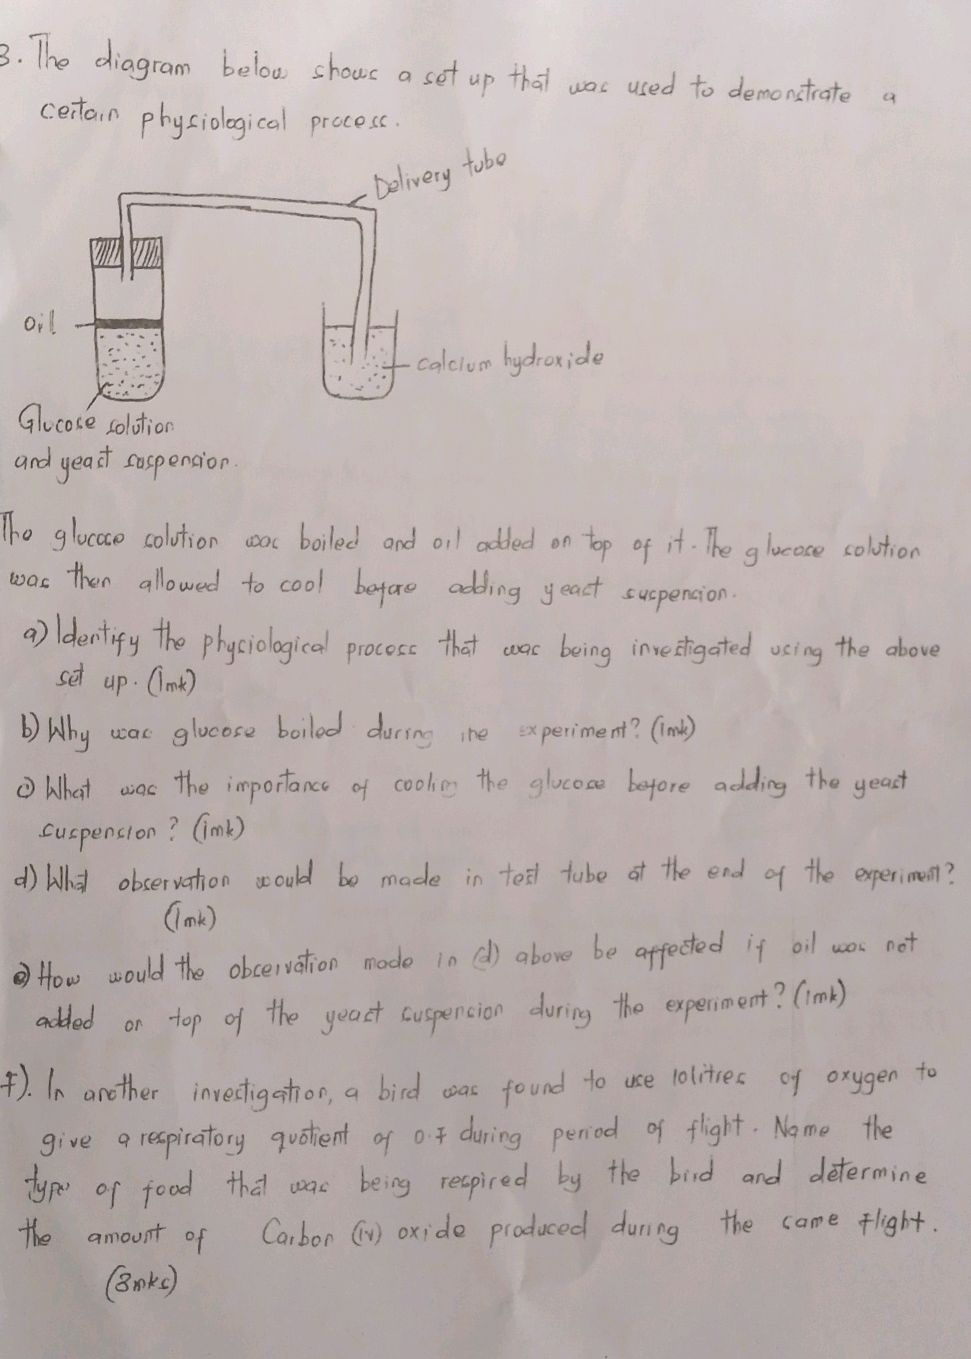 3. The diagram below shows a set up that was used to demonstrate a
certain physiological process.
Delivery tube
Oil
calcium hydroxide
Glucose solution
and yeast suspension.
The glucose solution was boiled and oil added on top of it. The glucose solution
was then allowed to cool before adding yeast suspension.
a) Identify the physiological process that was being investigated using the above
set up. (1mk)
b) Why was glucose boiled during the experiment? (1mk)
c) What was the importance of cooling the glucose before adding the yeast
suspension? (1mk)
d) What observation would be made in test tube at the end of the experiment?
(1mk)
e) How would the observation made in (d) above be affected if oil was not
added on top of the yeast suspension during the experiment? (1mk)
f). In another investigation, a bird was found to use 10litres of oxygen to
give a respiratory quotient of 0.7 during period of flight. Name the
type of food that was being respired by the bird and determine
the amount of Carbon (iv) oxide produced during the same flight.
(3mks)